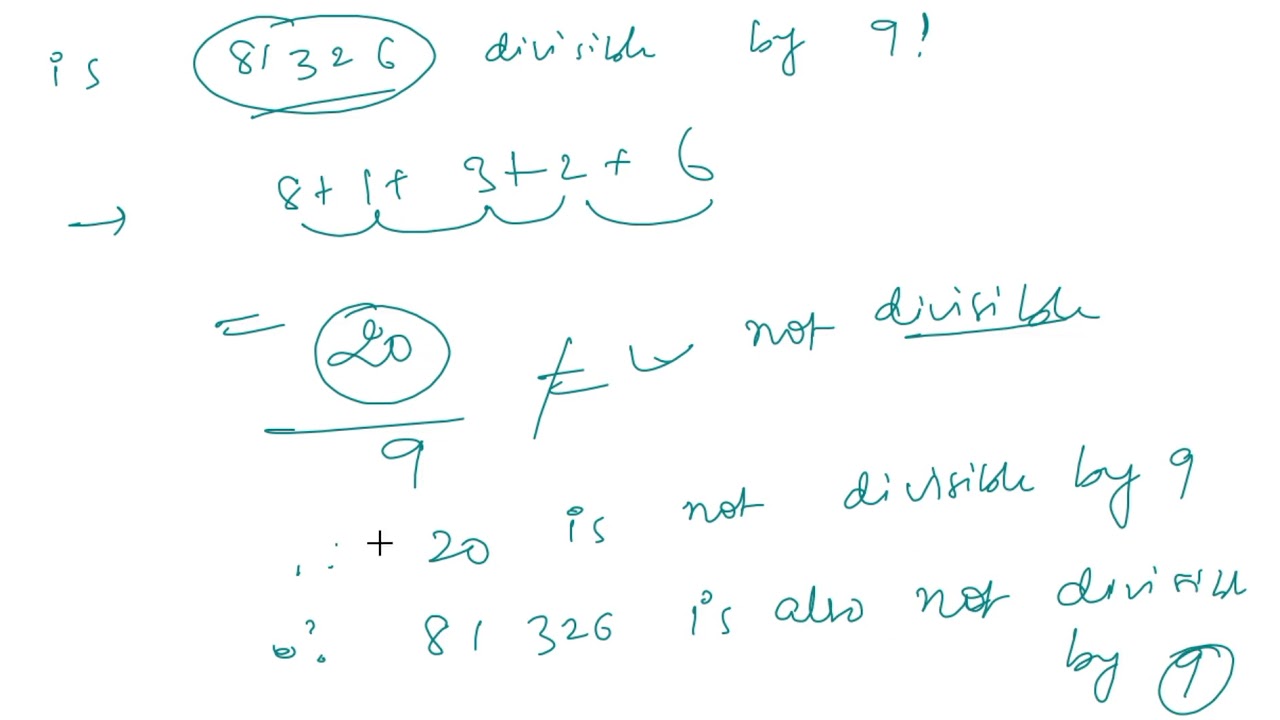 is 81326 divisible by 9!
→ 8+1+3+2+6
= 20/9 ≠ not divisible
∴ 20 is not divisible by 9
∴ 81326 is also not divisible
by 9